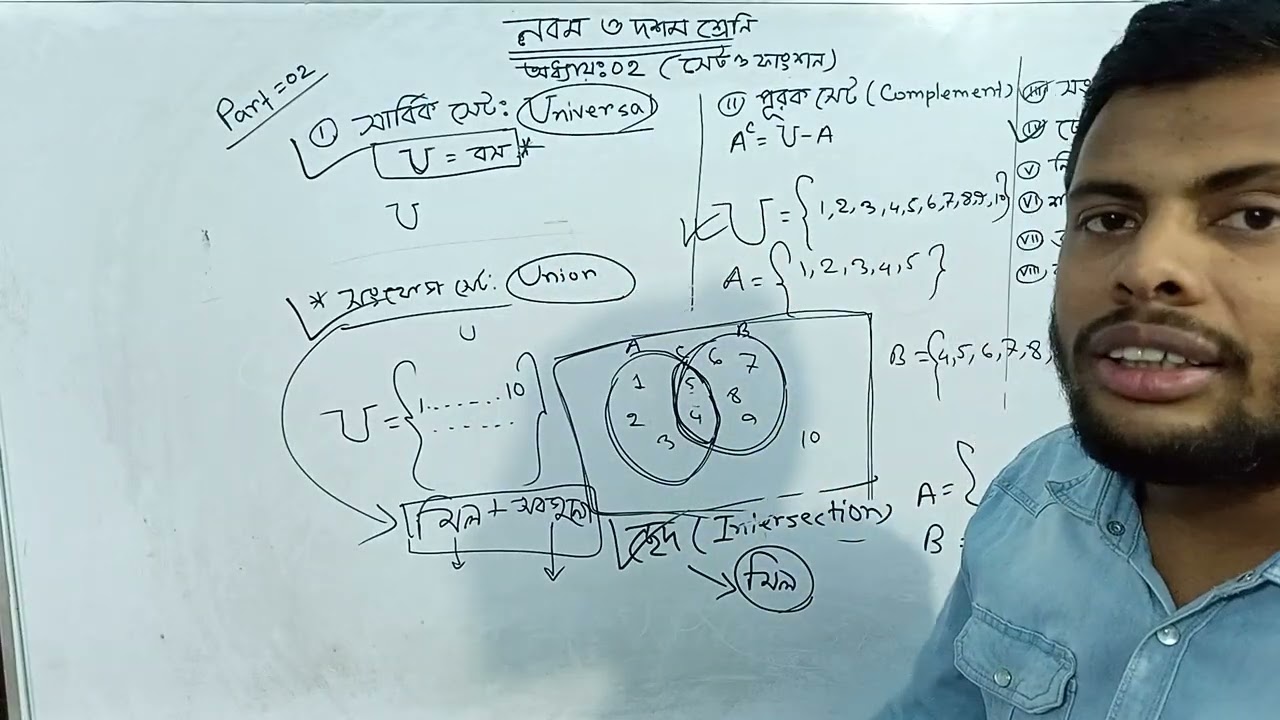 নবম ও দশম শ্রেনি
অধ্যায়ঃ০২ (সেট ও ফাংশন)
Part=02
① সার্বিক সেট: Universal
U = বস *
U
* সংযোগ সেট: Union
U
U = {1.......10
.......}
মিল + সবগুলা
ⅠⅠ পূরক সেট (Complement)
Aᶜ = U - A
U = {1,2,3,4,5,6,7,8,9,10}
A = {1,2,3,4,5}
B = {4,5,6,7,8,
A C B
1 5 6 7
2 4 8
3 9
10
ছেদ (Iniersection)
মিল
A = {
B =
III
IV
V
VI
VII
VIII